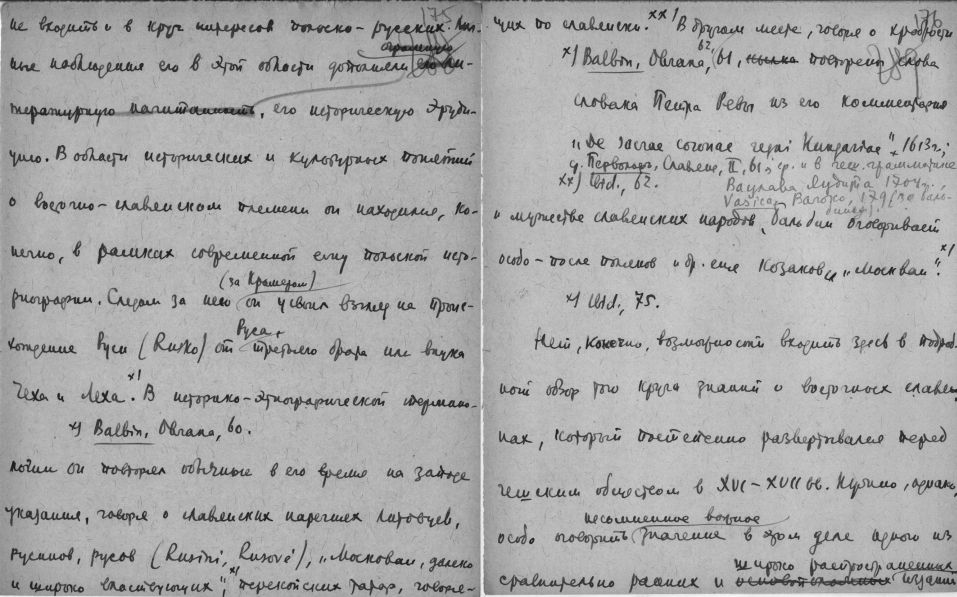 175
не входить и в круг интересов польско-русских. Лич-
ограниченную
ные наблюдения его в этой области дополняли его ли-
тературную начитанность, его историческую эруди-
цию. В области исторических и культурных понятий
о восточно-славянском племени он находился, ко-
нечно, в рамках современной ему польской исто-
(за Кромером)
риографии. Следом за нею он усвоил взгляд на проис-
Руса,
хождение Руси (Rusko) от третьего брата или внука
Чеха и Леха. x) В историко-этнографической термино-
x) Balbín, Obrana, 60.
логии он повторял обычные в его время на западе
указания, говоря о славянских наречиях литовцев,
русинов, русов (Rusíni, Rusové), „Московы, далеко
и широко властвующих", x) перекопских татар, говоря-
176
щих по славянски. xx) В другом месте, говоря о храбрости
x) Balbín, Obrana, 61, 62, повторены слова
словака Петра Ревы из его комментария
„De sacrae coronae regni Hungariae", 1613 г.;
ср. Первольф, Славяне, II, 61, ср. и в чеш. грамматике
xx) Ibid., 62. Вацлава Яндита 1704 г.,
Vašica, Baroko, 179 (30 Баль-
бинах).
и мужестве славянских народов, Бальбин оговаривает
особо - после поляков и др. еще Козаков и „Москван". x)
x) Ibid., 75.
Нет, конечно, возможности входить здесь в подроб-
ный обзор того круга знаний о восточных славя-
нах, который постепенно развертывался перед
чешским обществом в XVI-XVII вв. Нужно, однако,
несомненное важное
особо оговорить значение в этом деле одного из
широко распространенных
сравнительно ранних и изданий